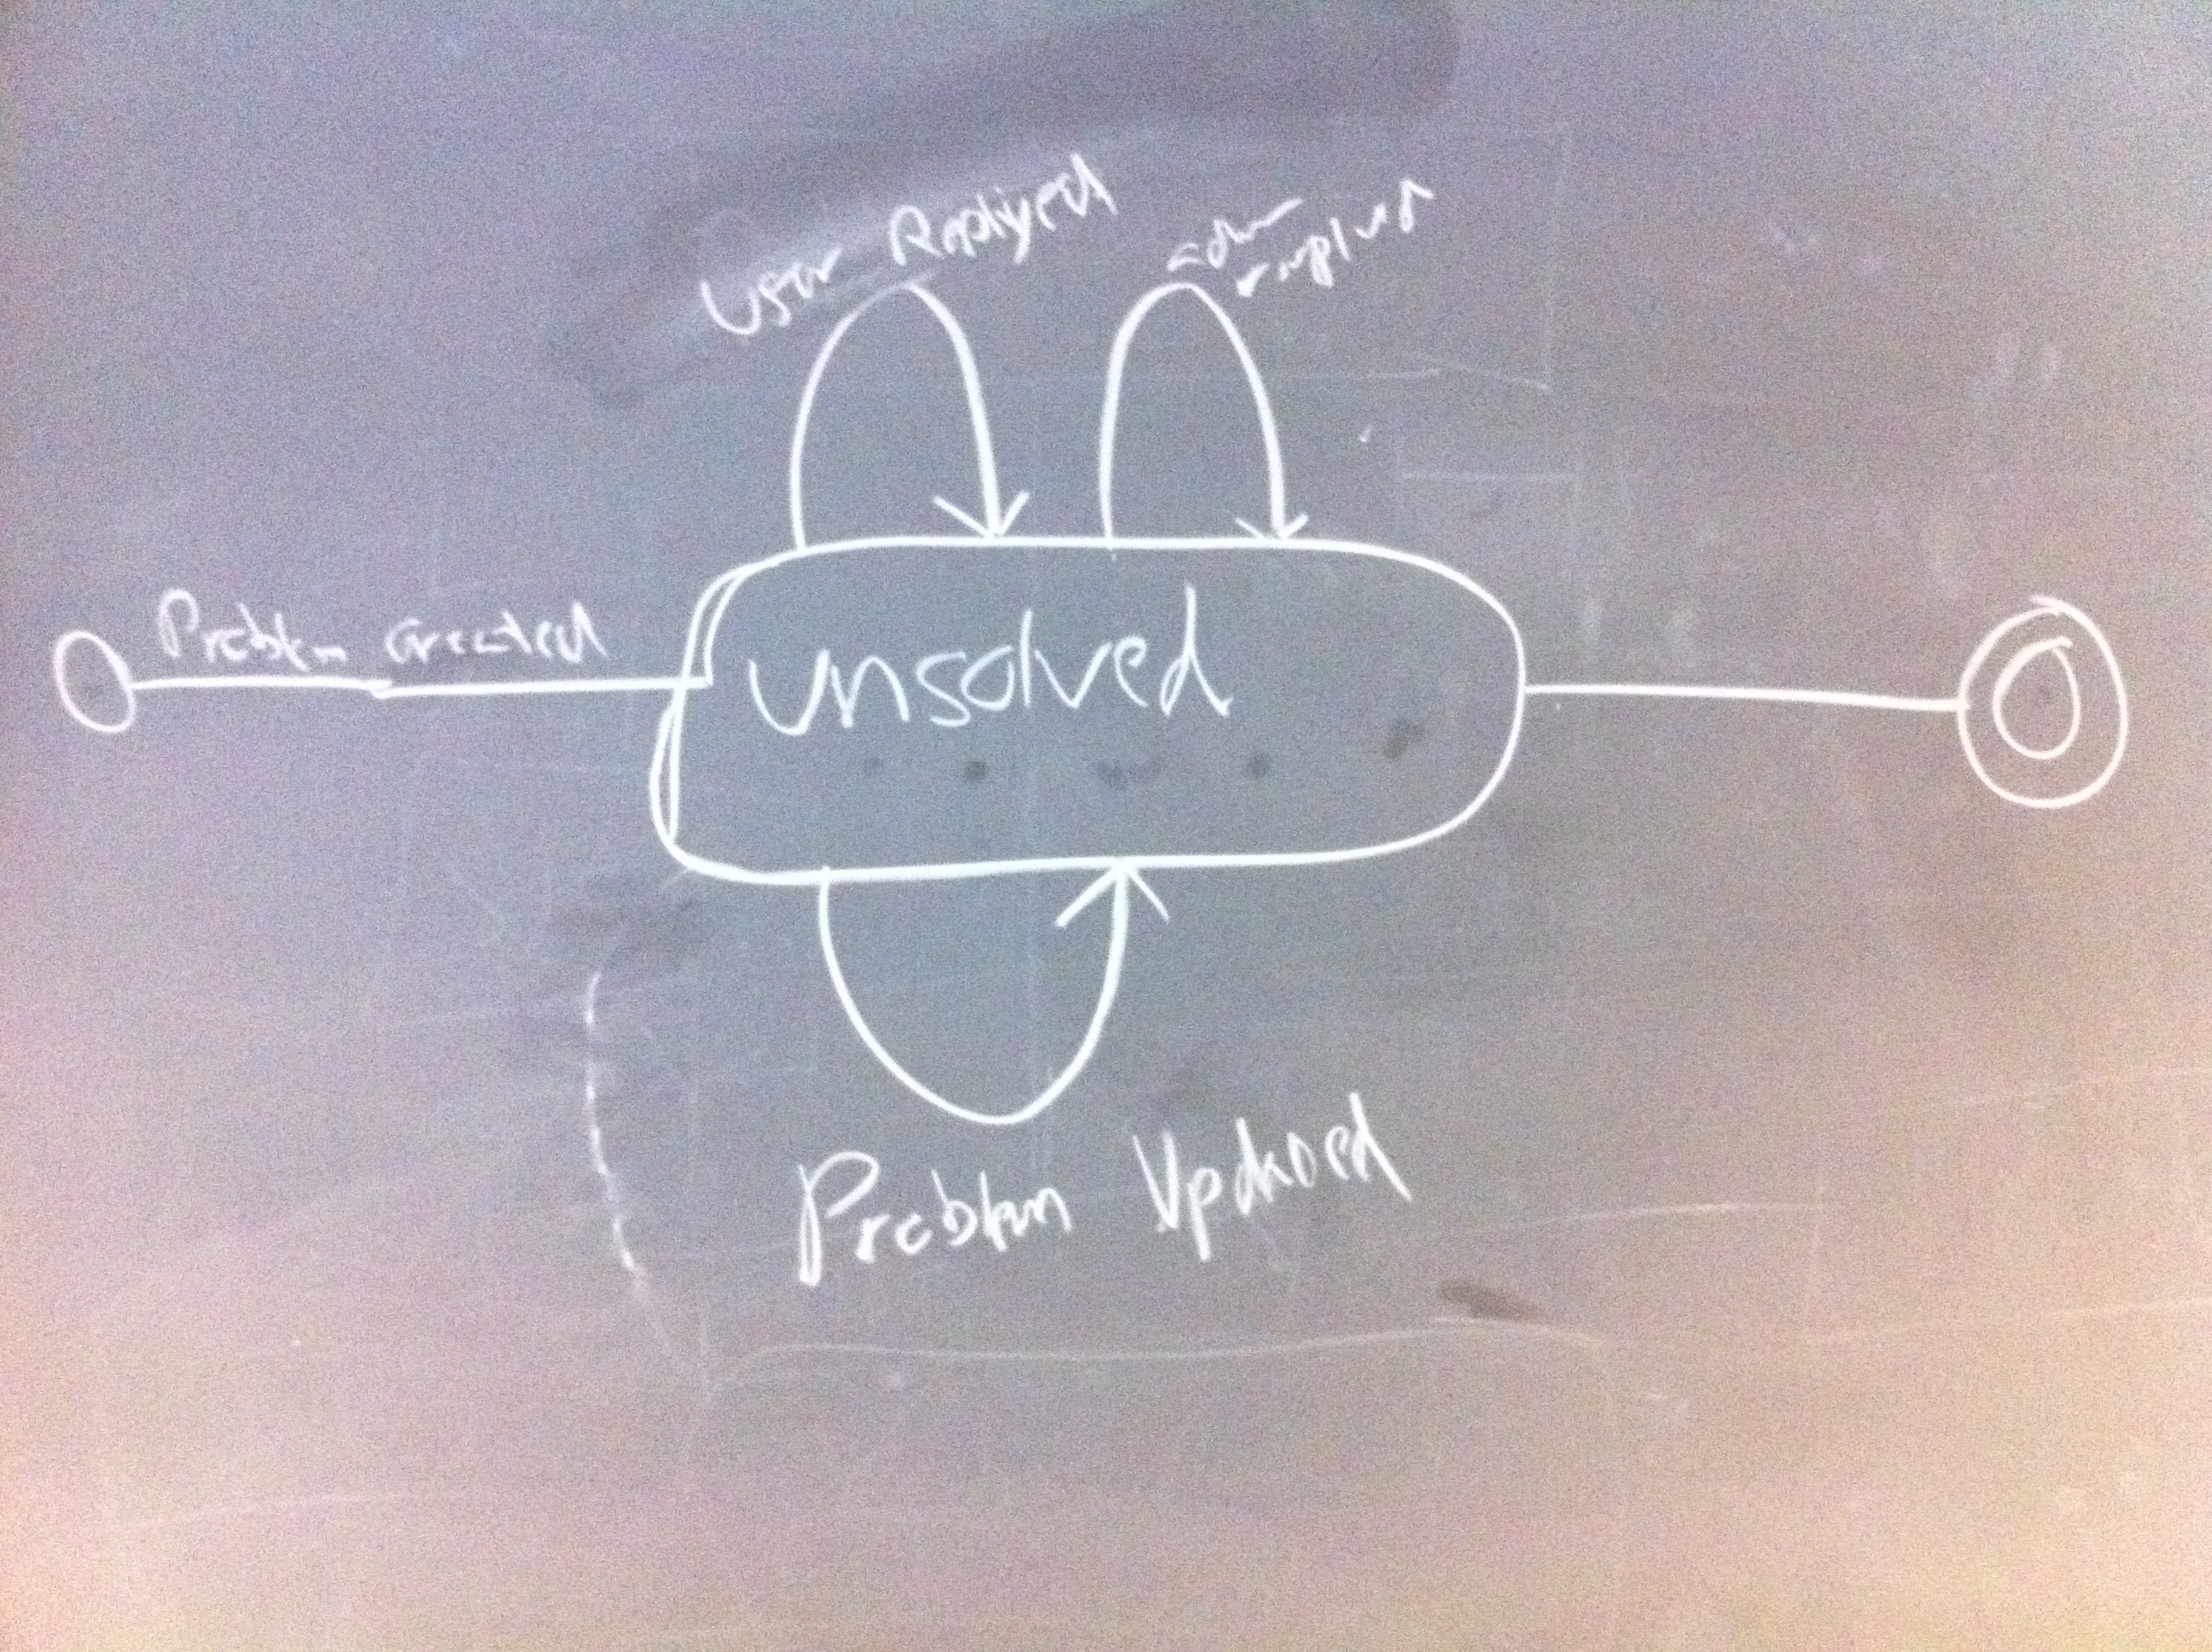 User Repliyed
replied
Problem Created
unsolved
Problem Updated